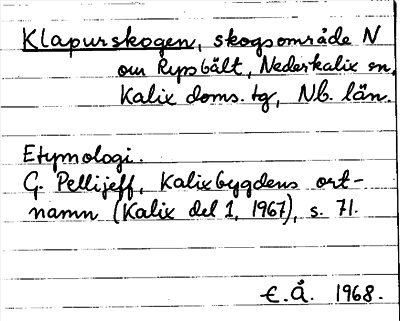 Klapurskogen, skogsområde N
om Rypsbält, Nederkalix sn,
Kalix doms. tg, Nb. län.
Etymologi.
G. Pellijeff, Kalixbygdens ort-
namn (Kalix del 1, 1967), s. 71.
E.Å. 1968.